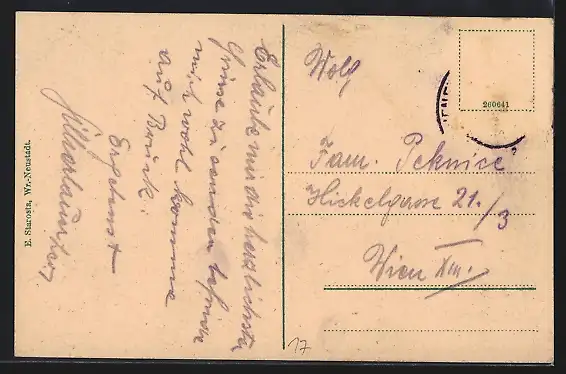 Erlaube mir die herzlichsten
Grüsse zu senden befinde
mich wohl komme
auf Bruck.
Ergebenst
E. Starosta, Wr.-Neustadt.
Wolf
200641
Fam. Peknice
Hickelgasse 21./3
Wien XIII.
17